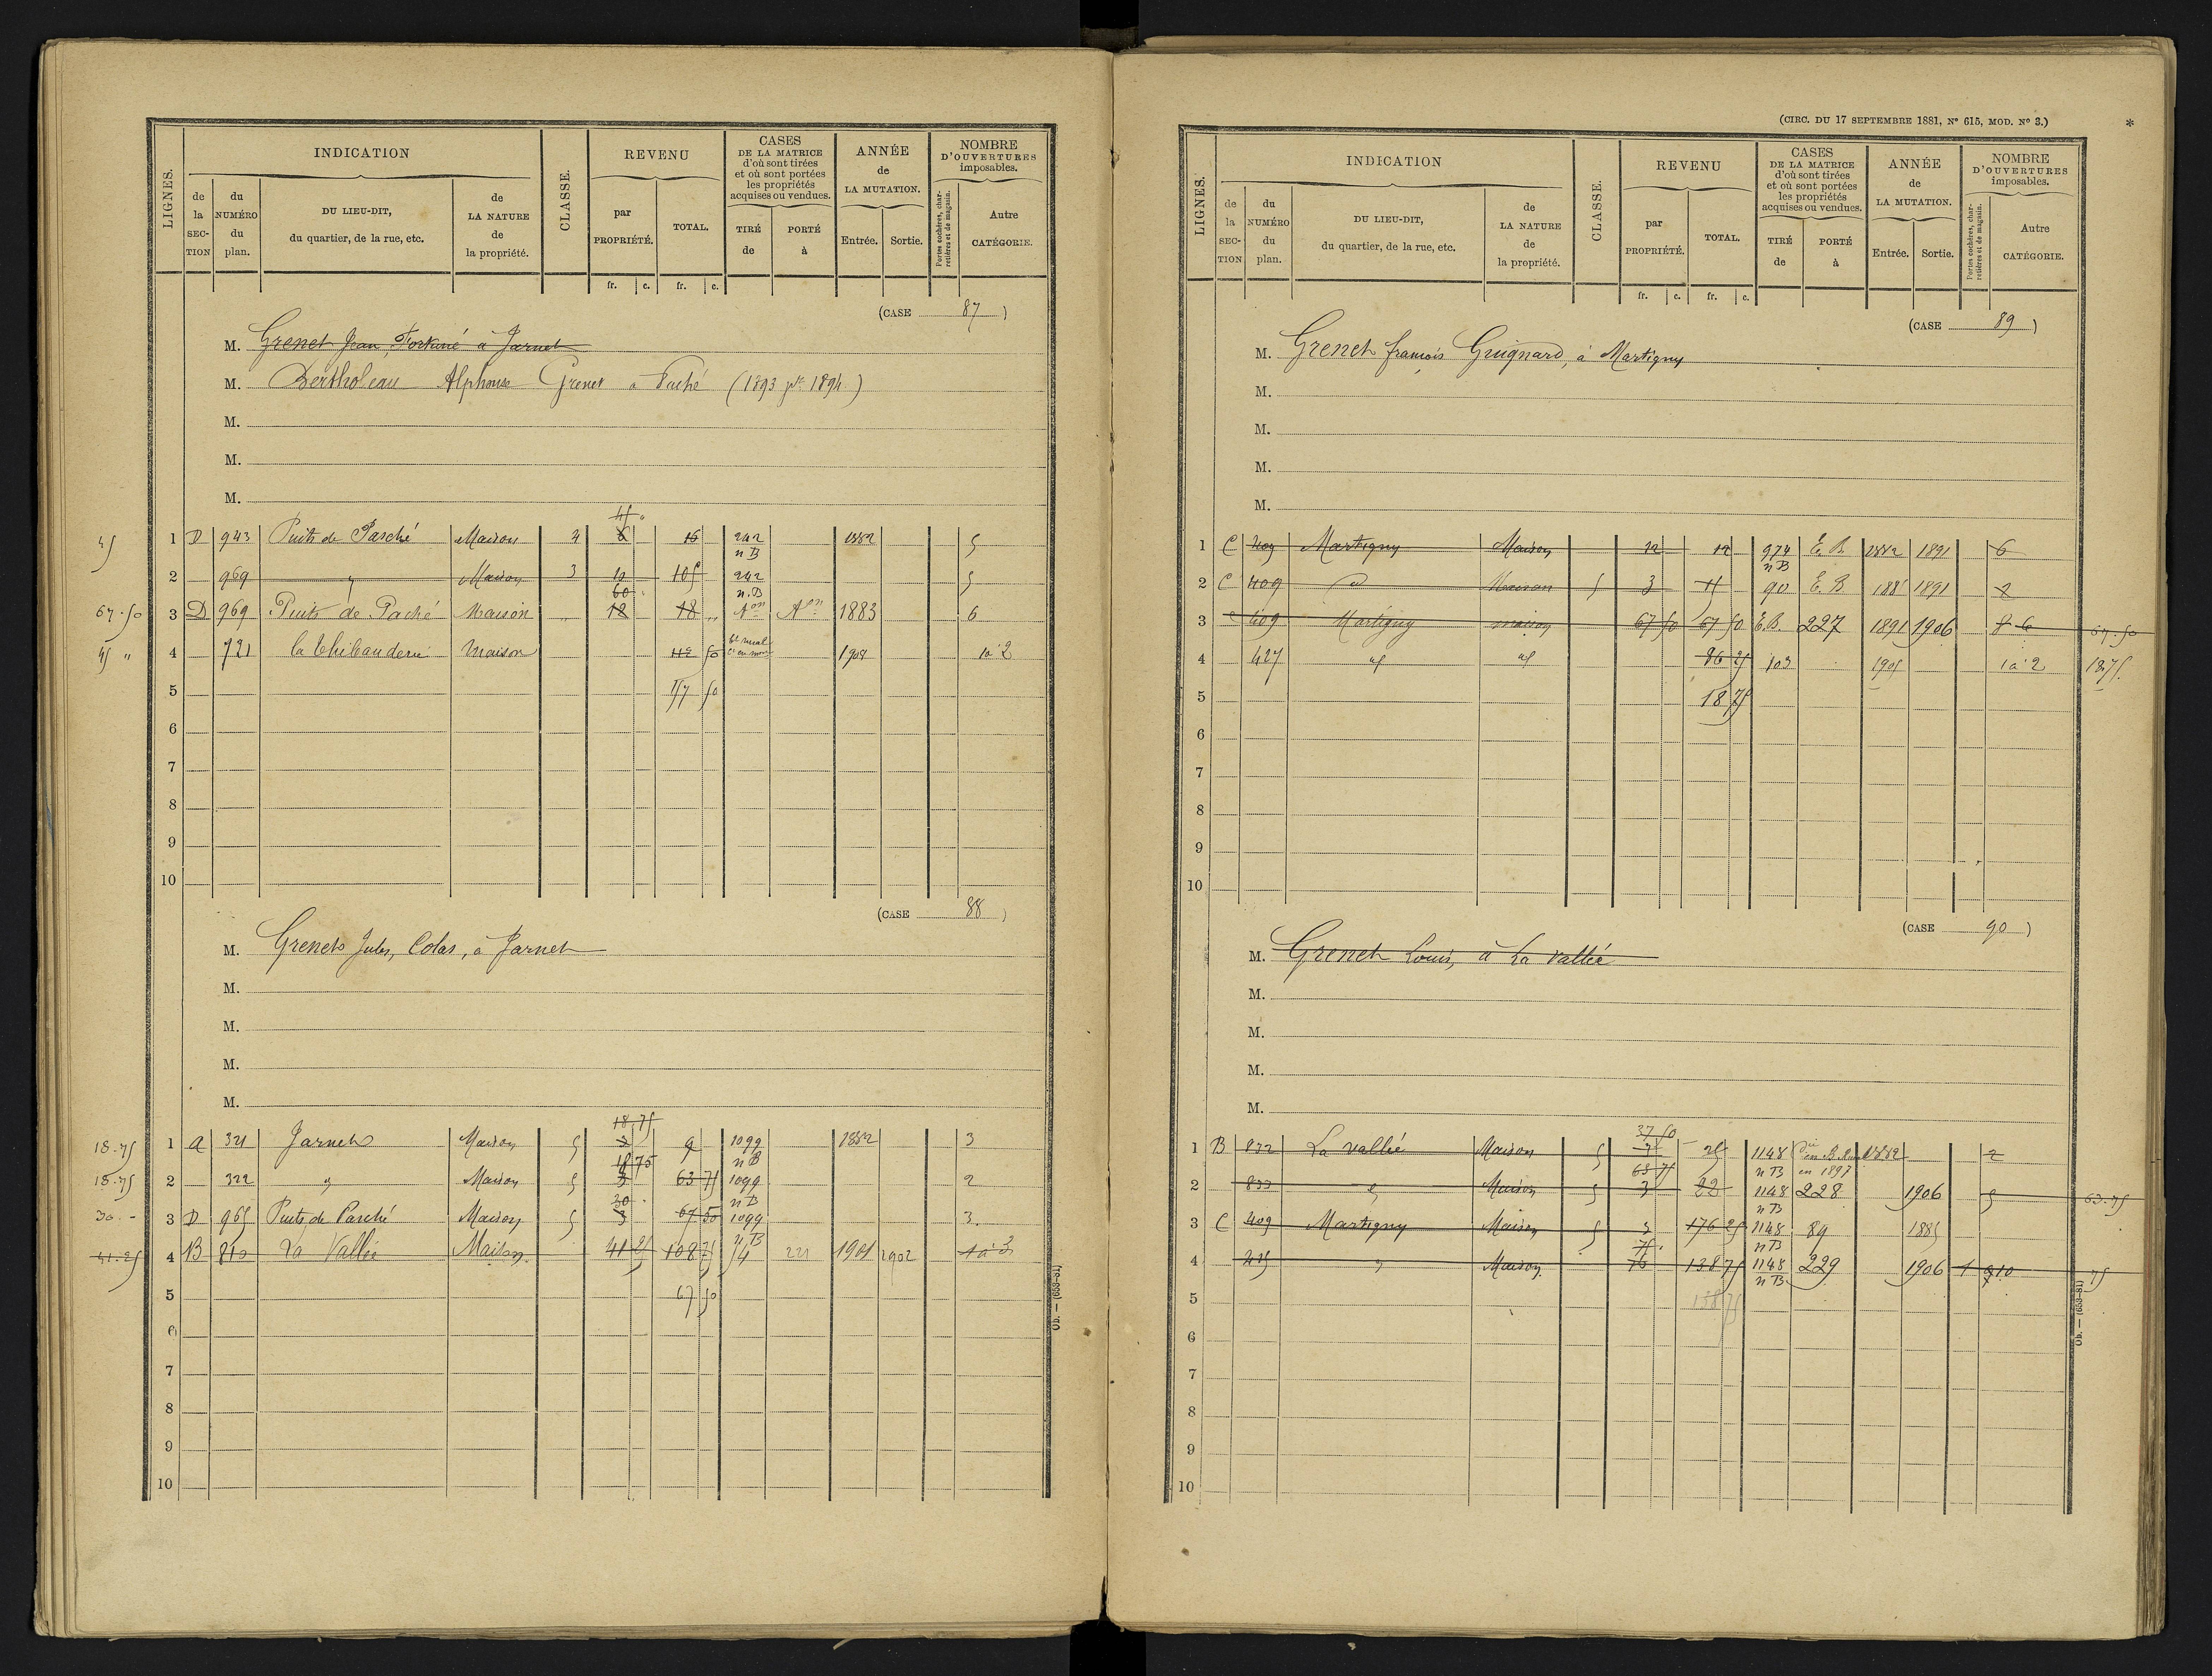 LIGNES. INDICATION CLASSE. REVENU CASES DE LA MATRICE d'où sont tirées et où sont portées les propriétés acquises ou vendues. ANNÉE de LA MUTATION. NOMBRE D'OUVERTURES imposables.
de la SECTION du NUMÉRO du plan. DU LIEU-DIT, du quartier, de la rue, etc. de LA NATURE de la propriété. par PROPRIÉTÉ. TOTAL. TIRÉ de PORTÉ à Entrée. Sortie. Portes cochères, charretières et de magasin. Autre CATÉGORIE.
fr. c. fr. c.
(CASE 87)
M. Grenet Jean, Fortuné à Jarnet
M. Bertholeau Alphonse Grenet à Paché (1893 pr 1894)
M.
M.
M.
45
45 1 D 943 Puits de Pasché Maison 4 16 242 n B 1882 5
2 969 " Maison 3 10 105 242 n.B 5
60
67.50 3 D 969 Puits de Paché Maison " 18 18 " Aon Aon 1883 6
45 " 4 721 la Thibauderie Maison 112 50 1904 1 à 2
5 157 50
6
7
8
9
10
(CASE 88)
M. Grenet Jules, Colas, à Jarnet
M.
M.
M.
M.
18 75
18.75 1 A 321 Jarnet Maison 5 3 9 1099 n B 1882 3
18 75
18.75 2 322 " Maison 5 3 63 75 1099 n B 2
30
30.- 3 D 965 Puits de Pasché Maison 5 3 67 50 1099 n B 3.
41.25 4 B 810 La Vallée Maison 41 25 108 75 54 221 1901 1902 1 à 3
5 67 50
6
7
8
9
10
Ob. — (653-81)
(CIRC. DU 17 SEPTEMBRE 1881, Nº 615, MOD. Nº 3.) *
LIGNES. INDICATION CLASSE. REVENU CASES DE LA MATRICE d'où sont tirées et où sont portées les propriétés acquises ou vendues. ANNÉE de LA MUTATION. NOMBRE D'OUVERTURES imposables.
de la SECTION du NUMÉRO du plan. DU LIEU-DIT, du quartier, de la rue, etc. de LA NATURE de la propriété. par PROPRIÉTÉ. TOTAL. TIRÉ de PORTÉ à Entrée. Sortie. Portes cochères, charretières et de magasin. Autre CATÉGORIE.
fr. c. fr. c.
(CASE 89)
M. Grenet françois Guignard, à Martigny
M.
M.
M.
M.
1 C 409 Martigny Maison 12 12 974 n B E. B. 1882 1891 6
2 C 409 d Maison 5 3 15 90 E. B 1885 1891 2
3 C 409 Martigny maison 67 50 67 50 E.B. 227 1891 1906 8 6 67.50
4 427 id id 86 25 103 1905 1 à 2 18.75
5 18 75
6
7
8
9
10
(CASE 90)
M. Grenet Louis, à La Vallée
M.
M.
M.
M.
37 50
1 B 832 La Vallée Maison 5 3 25 1148 n B en 1897 1882 2
63 75
2 833 " Maison 5 3 22 1148 n B 228 1906 5 63.75
3 C 409 Martigny Maison 5 3 176 25 1148 n B 89 1885
75
4 425 " Maison 16 138 75 1148 n B 229 1906 1 10 75
5 138 75
6
7
8
9
10
Ob. — (653-81)